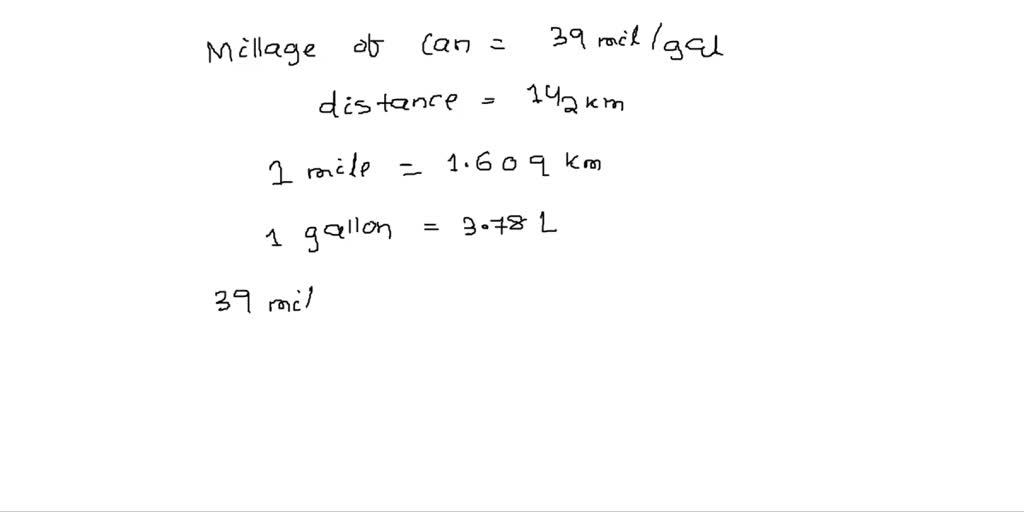 Millage of Car = 39 mil/gal
distance = 142 km
1 mile = 1.609 km
1 gallon = 3.78 L
39 mil